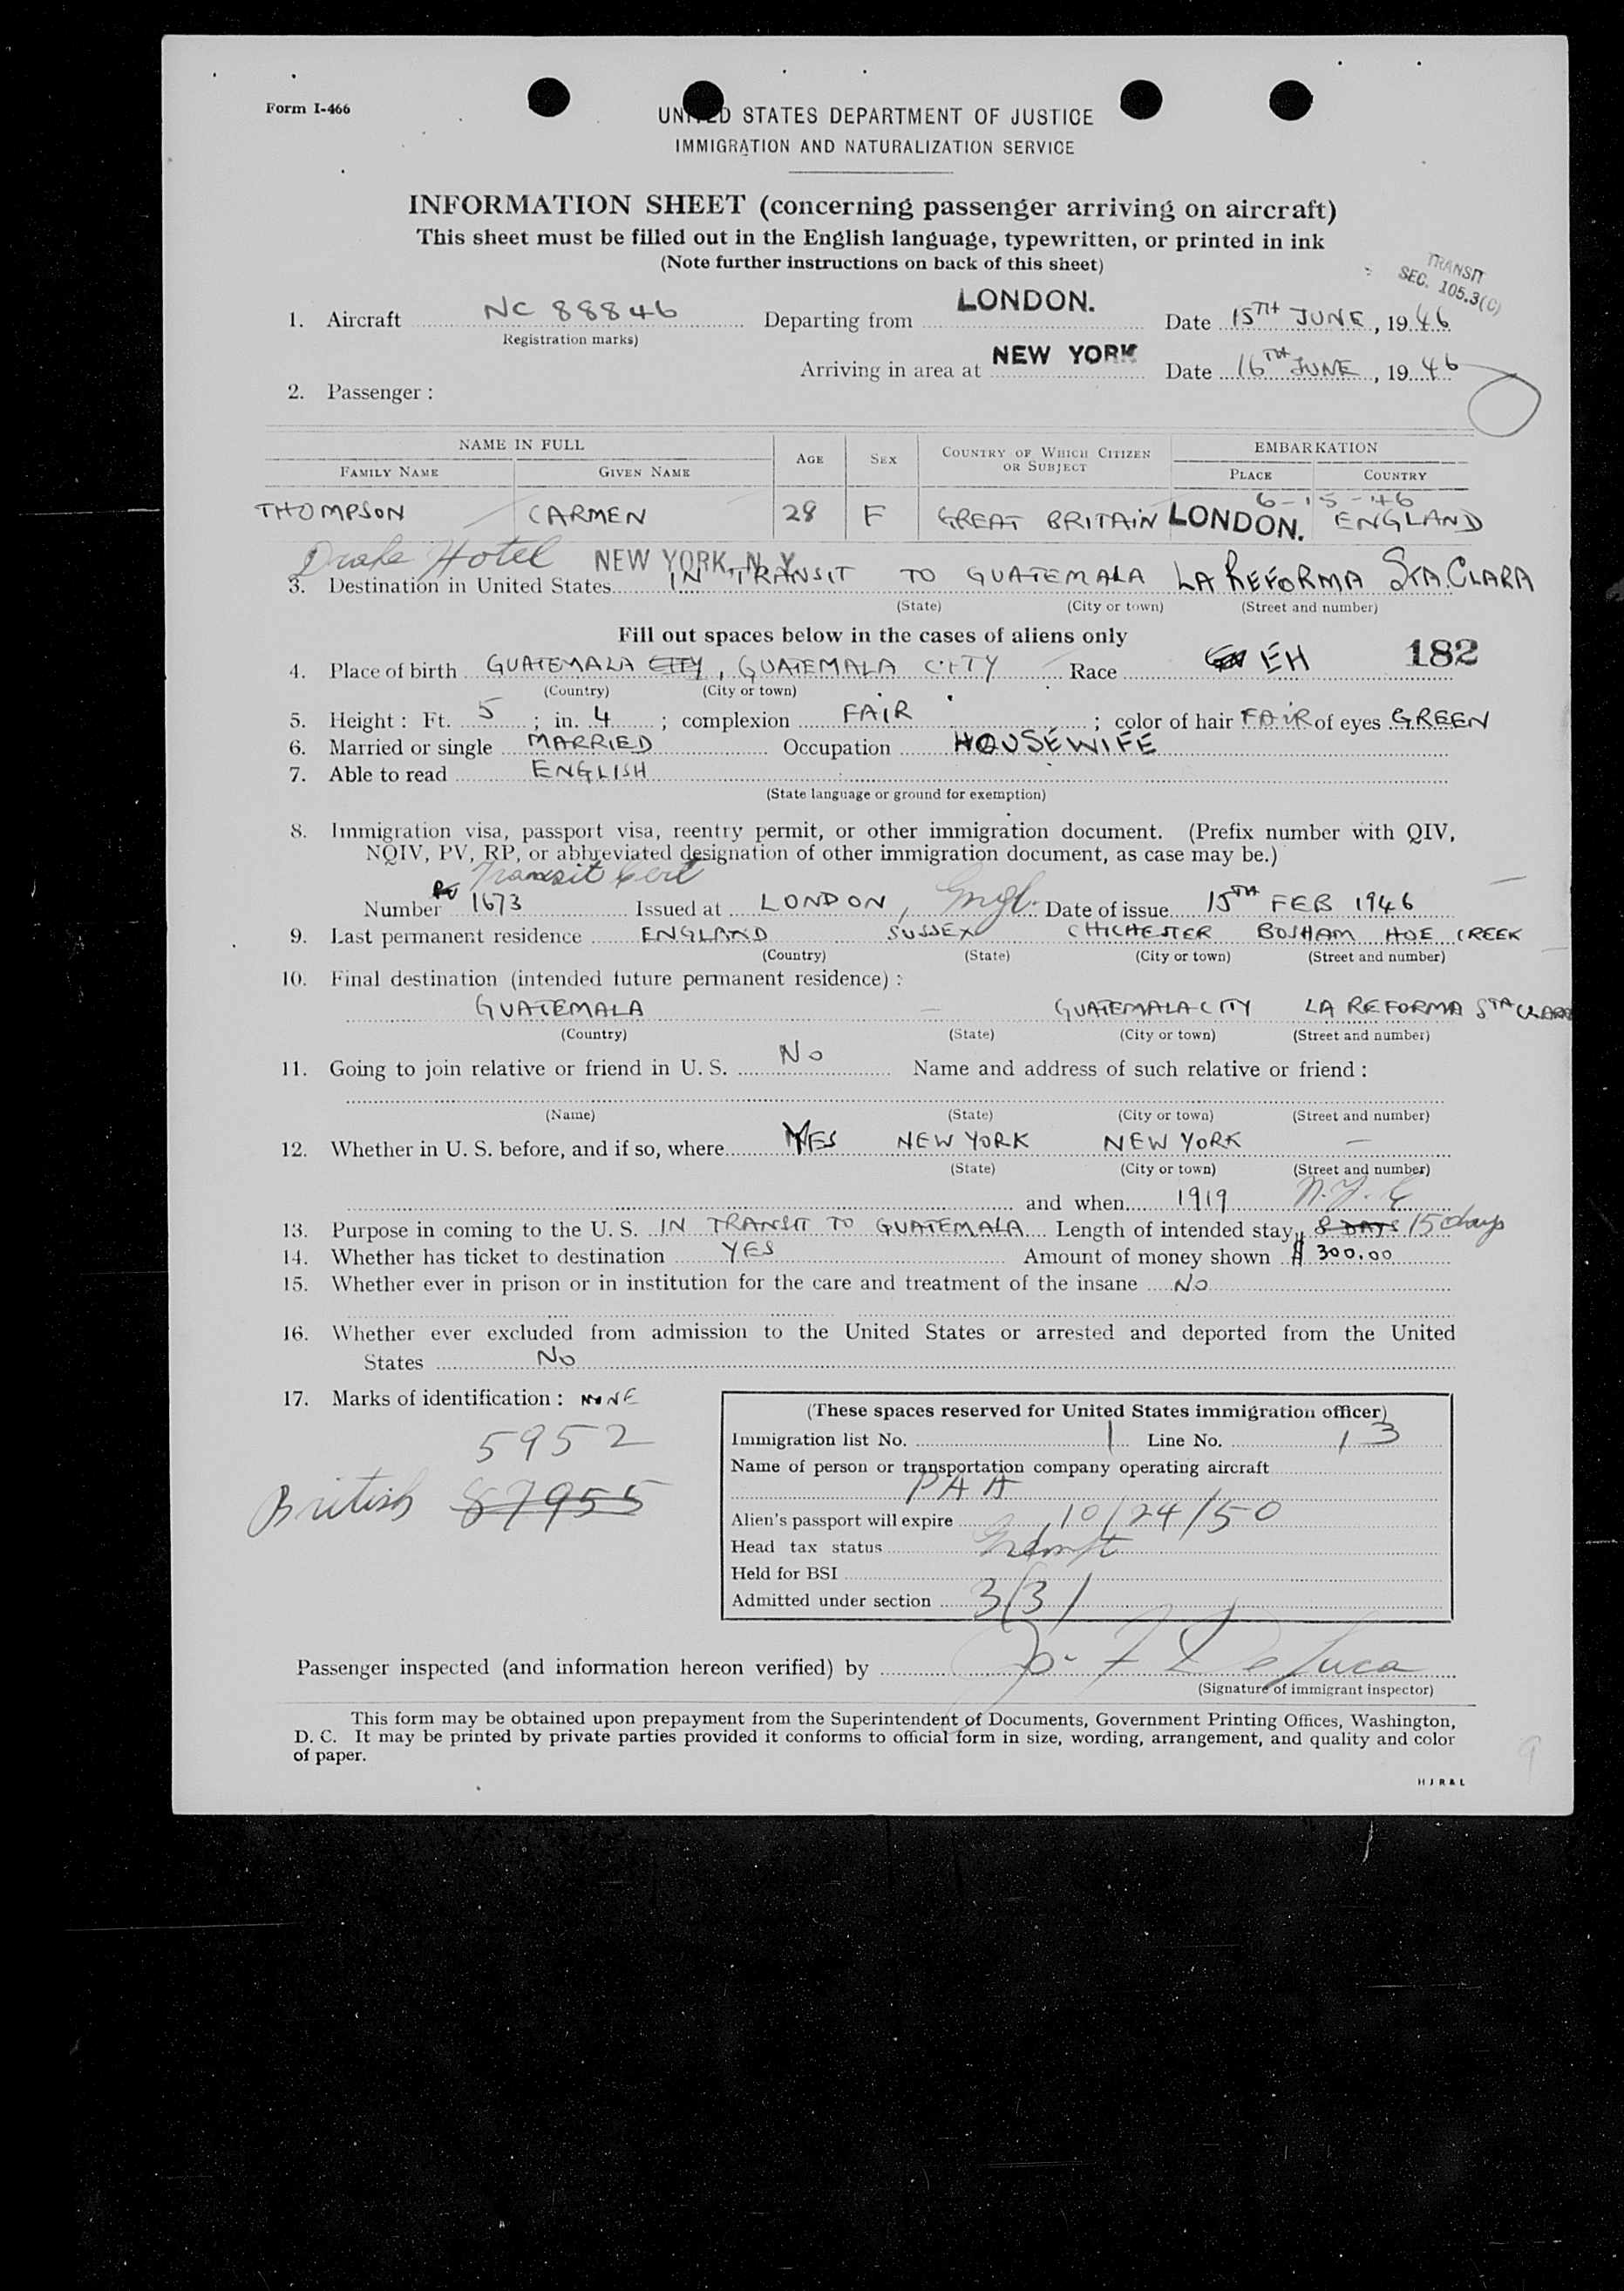 Form I-466
UNITED STATES DEPARTMENT OF JUSTICE
IMMIGRATION AND NATURALIZATION SERVICE
INFORMATION SHEET (concerning passenger arriving on aircraft)
This sheet must be filled out in the English language, typewritten, or printed in ink
(Note further instructions on back of this sheet)
TRANSIT
SEC. 105.3(C)
1. Aircraft NC 88846 Departing from LONDON. Date 15TH JUNE, 1946
(Registration marks)
Arriving in area at NEW YORK Date 16TH JUNE, 1946
2. Passenger:
NAME IN FULL AGE SEX COUNTRY OF WHICH CITIZEN OR SUBJECT EMBARKATION
FAMILY NAME GIVEN NAME PLACE COUNTRY
6-15-46
THOMPSON CARMEN 28 F GREAT BRITAIN LONDON. ENGLAND
Drake Hotel NEW YORK, N.Y.
3. Destination in United States IN TRANSIT TO GUATEMALA LA REFORMA STA. CLARA
(State) (City or town) (Street and number)
Fill out spaces below in the cases of aliens only
4. Place of birth GUATEMALA CITY, GUATEMALA CITY Race EH 182
(Country) (City or town)
5. Height: Ft. 5; in. 4; complexion FAIR; color of hair FAIR of eyes GREEN
6. Married or single MARRIED Occupation HOUSEWIFE
7. Able to read ENGLISH
(State language or ground for exemption)
8. Immigration visa, passport visa, reentry permit, or other immigration document. (Prefix number with QIV,
NQIV, PV, RP, or abbreviated designation of other immigration document, as case may be.)
Transit Cert
Number 1673 Issued at LONDON, Engl. Date of issue 15TH FEB 1946
9. Last permanent residence ENGLAND SUSSEX CHICHESTER BOSHAM HOE CREEK
(Country) (State) (City or town) (Street and number)
10. Final destination (intended future permanent residence):
GUATEMALA — GUATEMALA CITY LA REFORMA STA CLARA
(Country) (State) (City or town) (Street and number)
11. Going to join relative or friend in U. S. NO Name and address of such relative or friend:
(Name) (State) (City or town) (Street and number)
12. Whether in U. S. before, and if so, where YES NEW YORK NEW YORK —
(State) (City or town) (Street and number)
and when 1919 N.Y.C
13. Purpose in coming to the U. S. IN TRANSIT TO GUATEMALA Length of intended stay 8 DAYS 15 days
14. Whether has ticket to destination YES Amount of money shown $ 300.00
15. Whether ever in prison or in institution for the care and treatment of the insane NO
16. Whether ever excluded from admission to the United States or arrested and deported from the United
States NO
17. Marks of identification: NONE
5952
British 87955
(These spaces reserved for United States immigration officer)
Immigration list No. 1 Line No. 13
Name of person or transportation company operating aircraft
PAA
Alien's passport will expire 10/24/50
Head tax status Exempt
Held for BSI
Admitted under section 3(3)
Passenger inspected (and information hereon verified) by Jo. F De Luca
(Signature of immigrant inspector)
This form may be obtained upon prepayment from the Superintendent of Documents, Government Printing Offices, Washington,
D. C. It may be printed by private parties provided it conforms to official form in size, wording, arrangement, and quality and color
of paper.
9
H J R & L